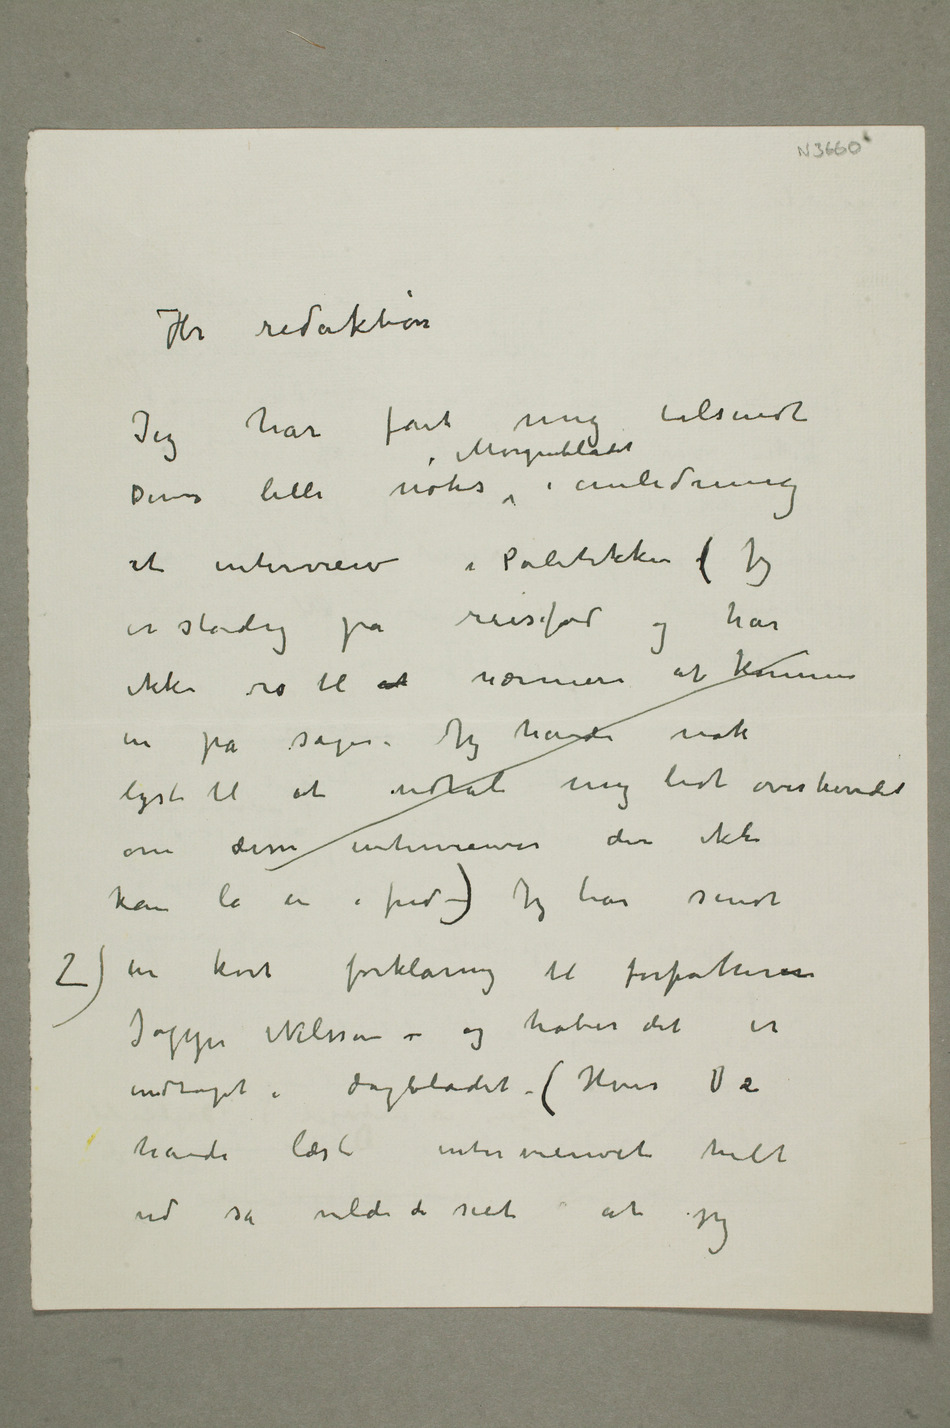 N 3660
Hr redaktør
Jeg har fåt mig tilsendt
i Morgenbladet
Deres lille notis i anledning
et interview i Politikken ( Jeg
er stadig på reisefod og har
ikke ro til at nærmere at komme
in på sagen. Jeg havde nok
lyst til at udtale mig lidt overhovedet
om disse interviewer der ikke
kan la en i fred –) Jeg har sendt
2) en kort forklaring til forfatteren
Jappe Nilssen – og håber det er
indtaget i Dagbladet – ( Hvis De
havde læst interviewet helt
ud så vilde de seet at jeg